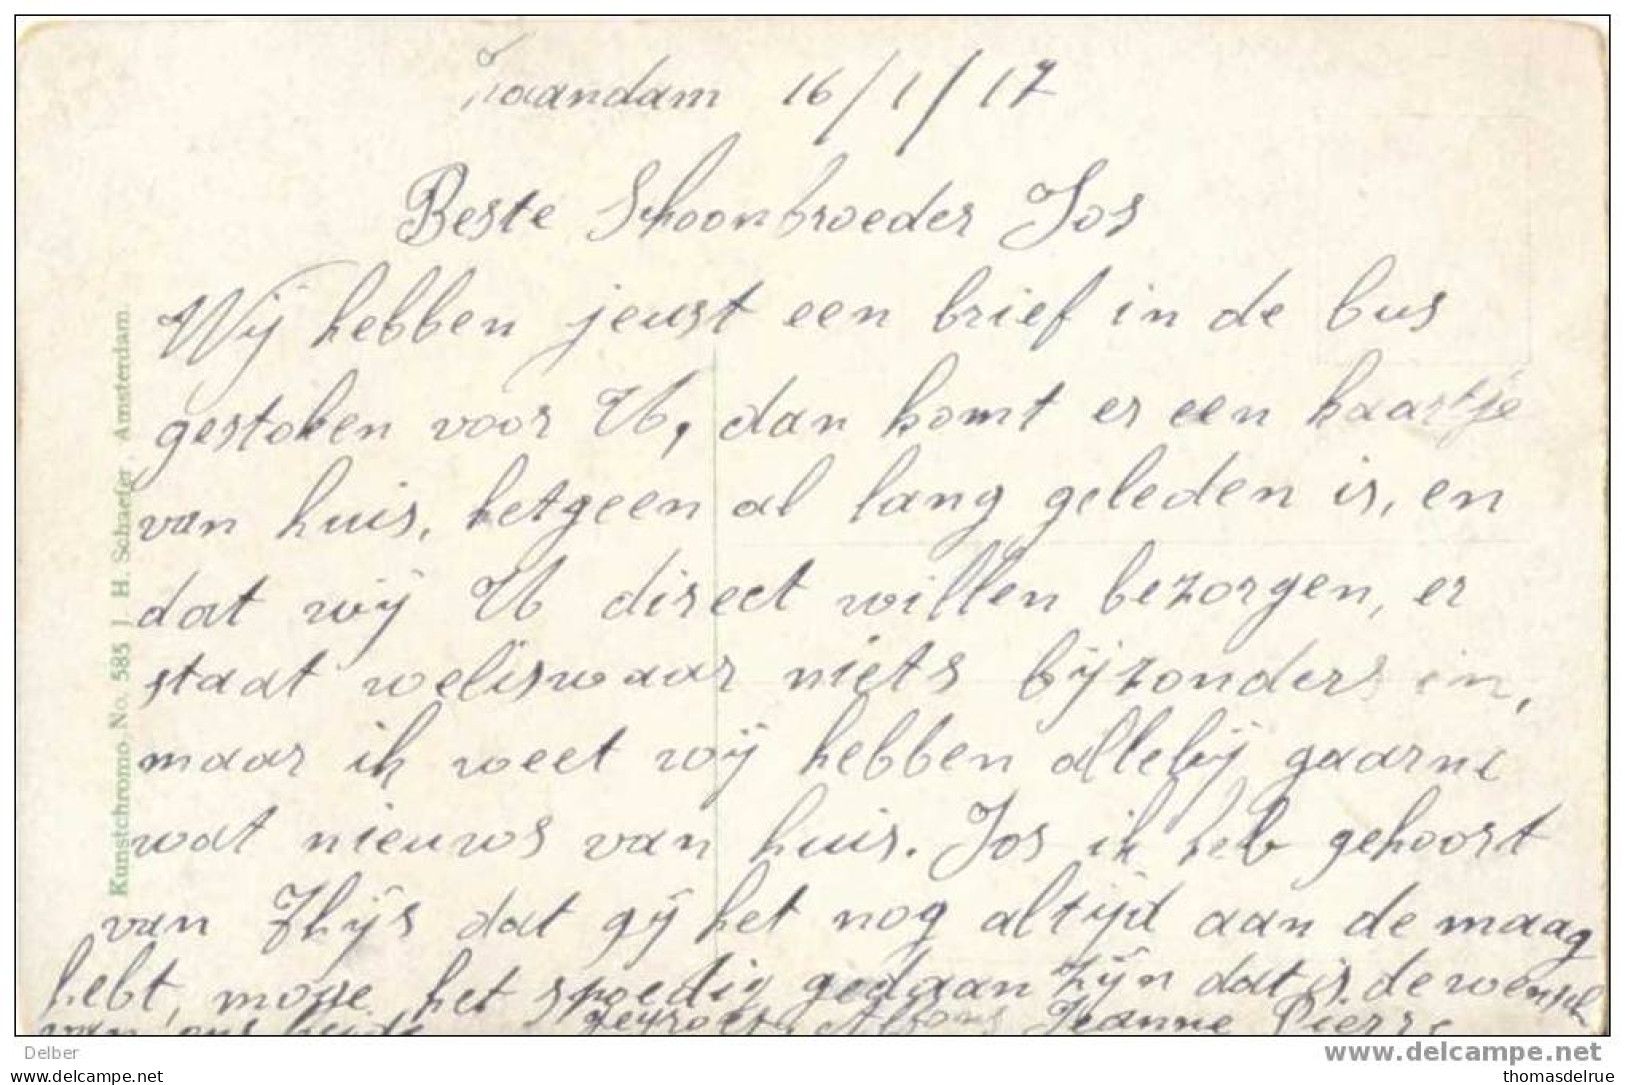 Zaandam 16/1/17
Beste Schoonbroeder Jos
Wij hebben jeust een brief in de bus
gestoken voor U, dan komt er een kaartje
van huis, hetgeen al lang geleden is, en
dat wij U direct willen bezorgen, er
staat weliswaar niets bijzonders in,
maar ik weet wij hebben allebij gaarne
wat nieuws van huis. Jos ik heb gehoort
van Thijs dat gij het nog altijd aan de maag
hebt, moge het spoedig gedaan zijn dat is de wensch
van ons beide Alfons Jeanne Pierre
Kunstchromo No. 585 J. H. Schaefer, Amsterdam.
Delber
www.delcampe.net
thomasdelrue